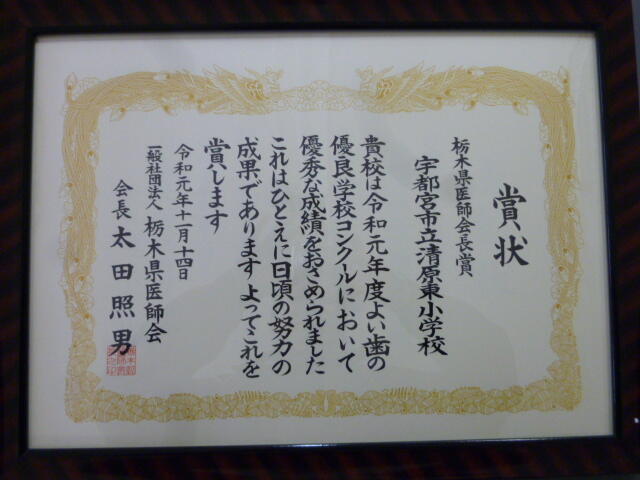 賞状
栃木県医師会長賞
宇都宮市立清原東小学校
貴校は令和元年度よい歯の
優良学校コンクールにおいて
優秀な成績をおさめられました
これはひとえに日頃の努力の
成果であります よってこれを
賞します
令和元年十一月十四日
一般社団法人 栃木県医師会
会長 太田照男